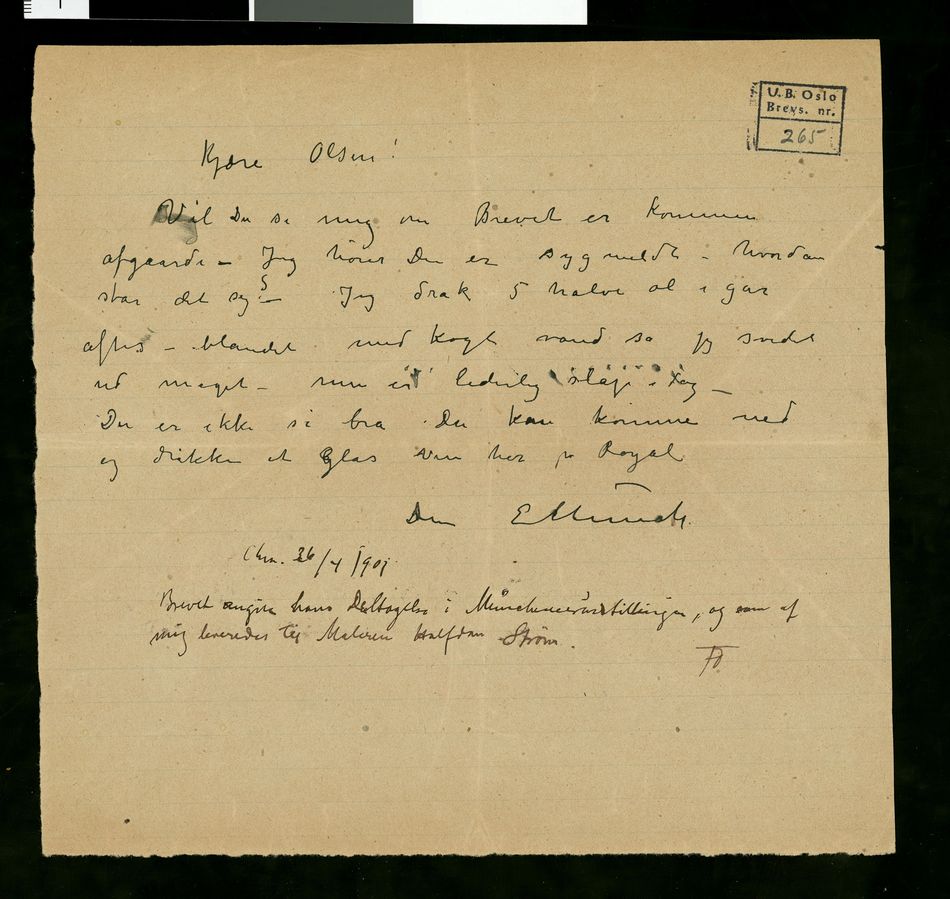 U. B. Oslo
Brevs. nr.
265
Kjære Olsen!
Vil Du si mig om Brevet er kommen
afgaarde – Jeg hører Du er sygmeldt – hvordan
står det sig? – Jeg drak 5 halve øl i går
aftes – blandet med kogt vand så jeg svedet
ud meget – men er lederlig sløj i dag –
Du er ikke så bra Du kan komme ned
og drikke et Glas vin her på Royal
Din E Munch
Chra. 26/4 1901
Brevet angik hans Deltagelse i Münchenerudstillingen, og som af
mig leveredes til Maleren Halfdan Strøm.